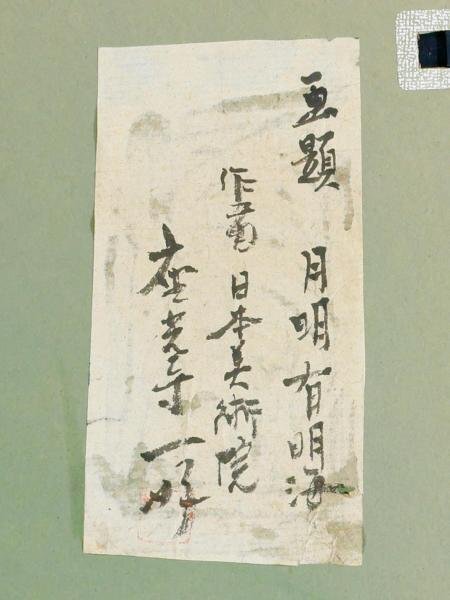 画題 月明有明海
作画 日本美術院
光寺一好